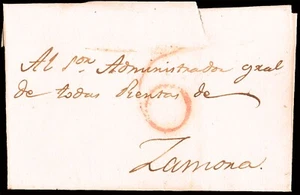 Al Sor. Administrador gral
de todas Rentas de
Zamora.